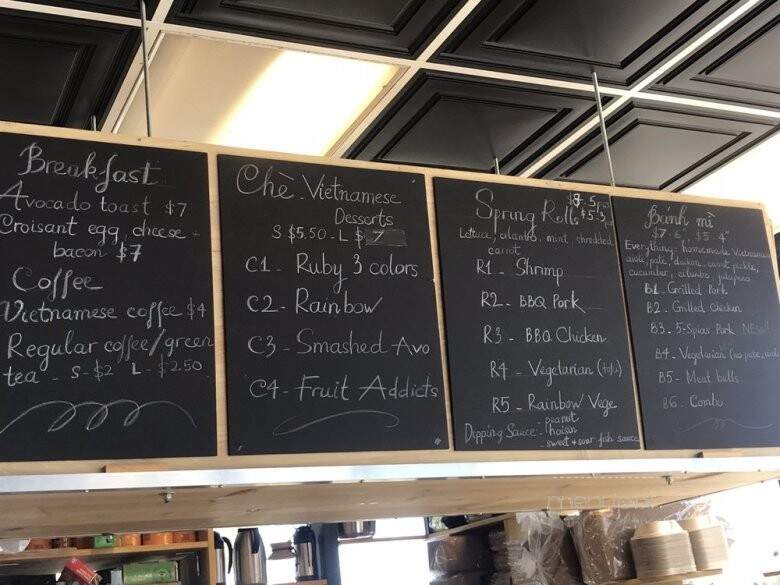 Breakfast
Avocado toast $7
Croisant egg, cheese -
bacon $7
Coffee
Vietnamese coffee $4
Regular coffee/green
tea - S-$2 L-$2.50
Chè - Vietnamese
Desserts
S $5.50 - L $ 7
C1 - Ruby 3 colors
C2 - Rainbow
C3 - Smashed Avo
C4 - Fruit Addicts
Spring Rolls
Lettuce, cilantro, mint shredded
carrot
R1 - Shrimp
R2 - BBQ Pork
R3 - BBQ Chicken
R4 - Vegetarian (tofu)
R5 - Rainbow Vege
peanut
Dipping Sauce: hoisin
- sweet & sour fish sauce
Bánh mì
$7 - 6" $5 - 4"
Everything: homemade Vietnamese
aioli, pate, daikon carrot pickle,
cucumber, cilantro, jalapeno
B1 - Grilled Pork
B2 - Grilled Chicken
B3 - 5-Spias Pork NEW
B4 - Vegetarian
B5 - Meat balls
B6 - Combo